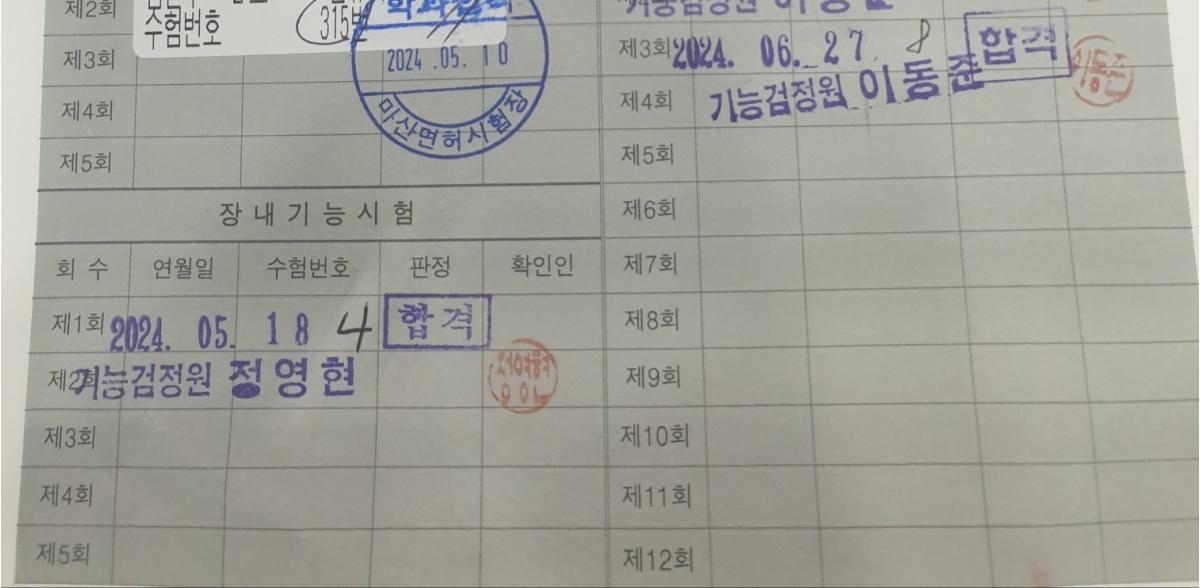 제2회
수험번호 315번
제3회
2024 .05. 10
제4회
마산면허시험장
제5회
장내기능시험
회 수 연월일 수험번호 판정 확인인
제1회 2024. 05. 18 4 합격
제2회 기능검정원 정영현
제3회
제4회
제5회
제3회 2024. 06. 27 8 합격
제4회 기능검정원 이동준 이동준
제5회
제6회
제7회
제8회
제9회
제10회
제11회
제12회